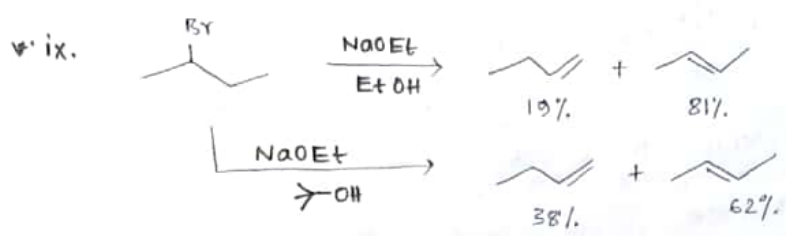 ix.
Br
NaOEt
EtOH
+
19%.
81%.
NaOEt
OH
+
38%.
62%.